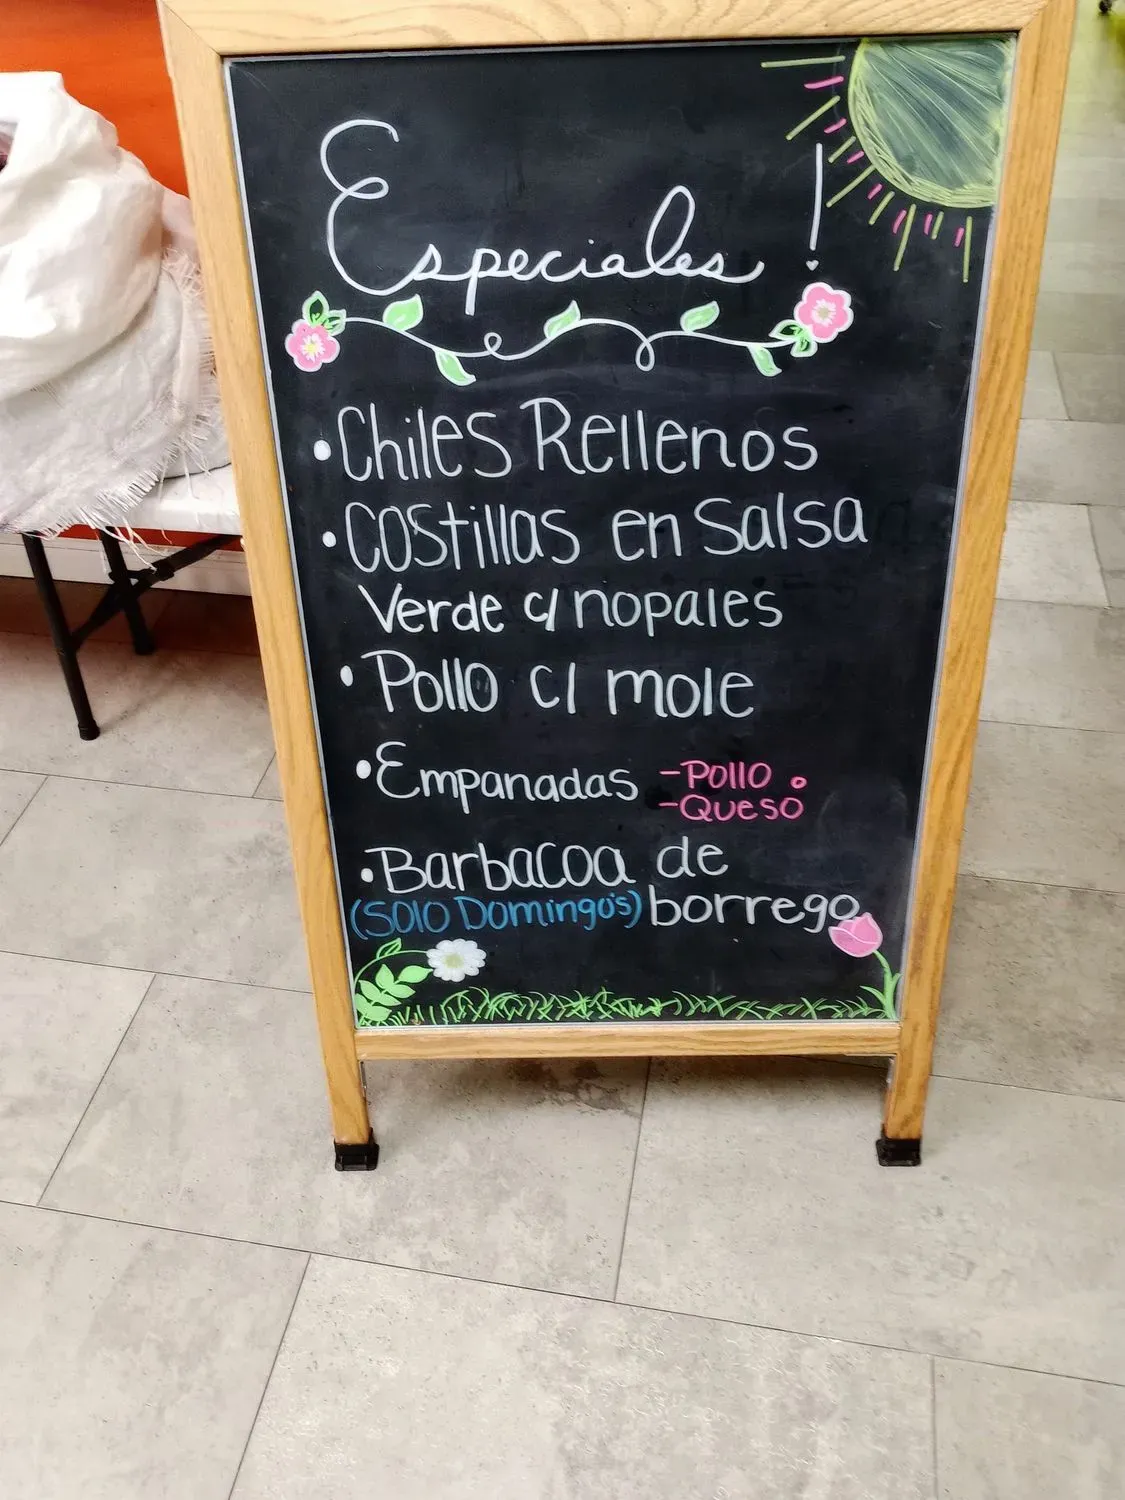 Especiales!
• Chiles Rellenos
• Costillas en Salsa
Verde c/nopales
• Pollo c/ mole
• Empanadas -Pollo o
-Queso
• Barbacoa de
(Solo Domingo's) borrego